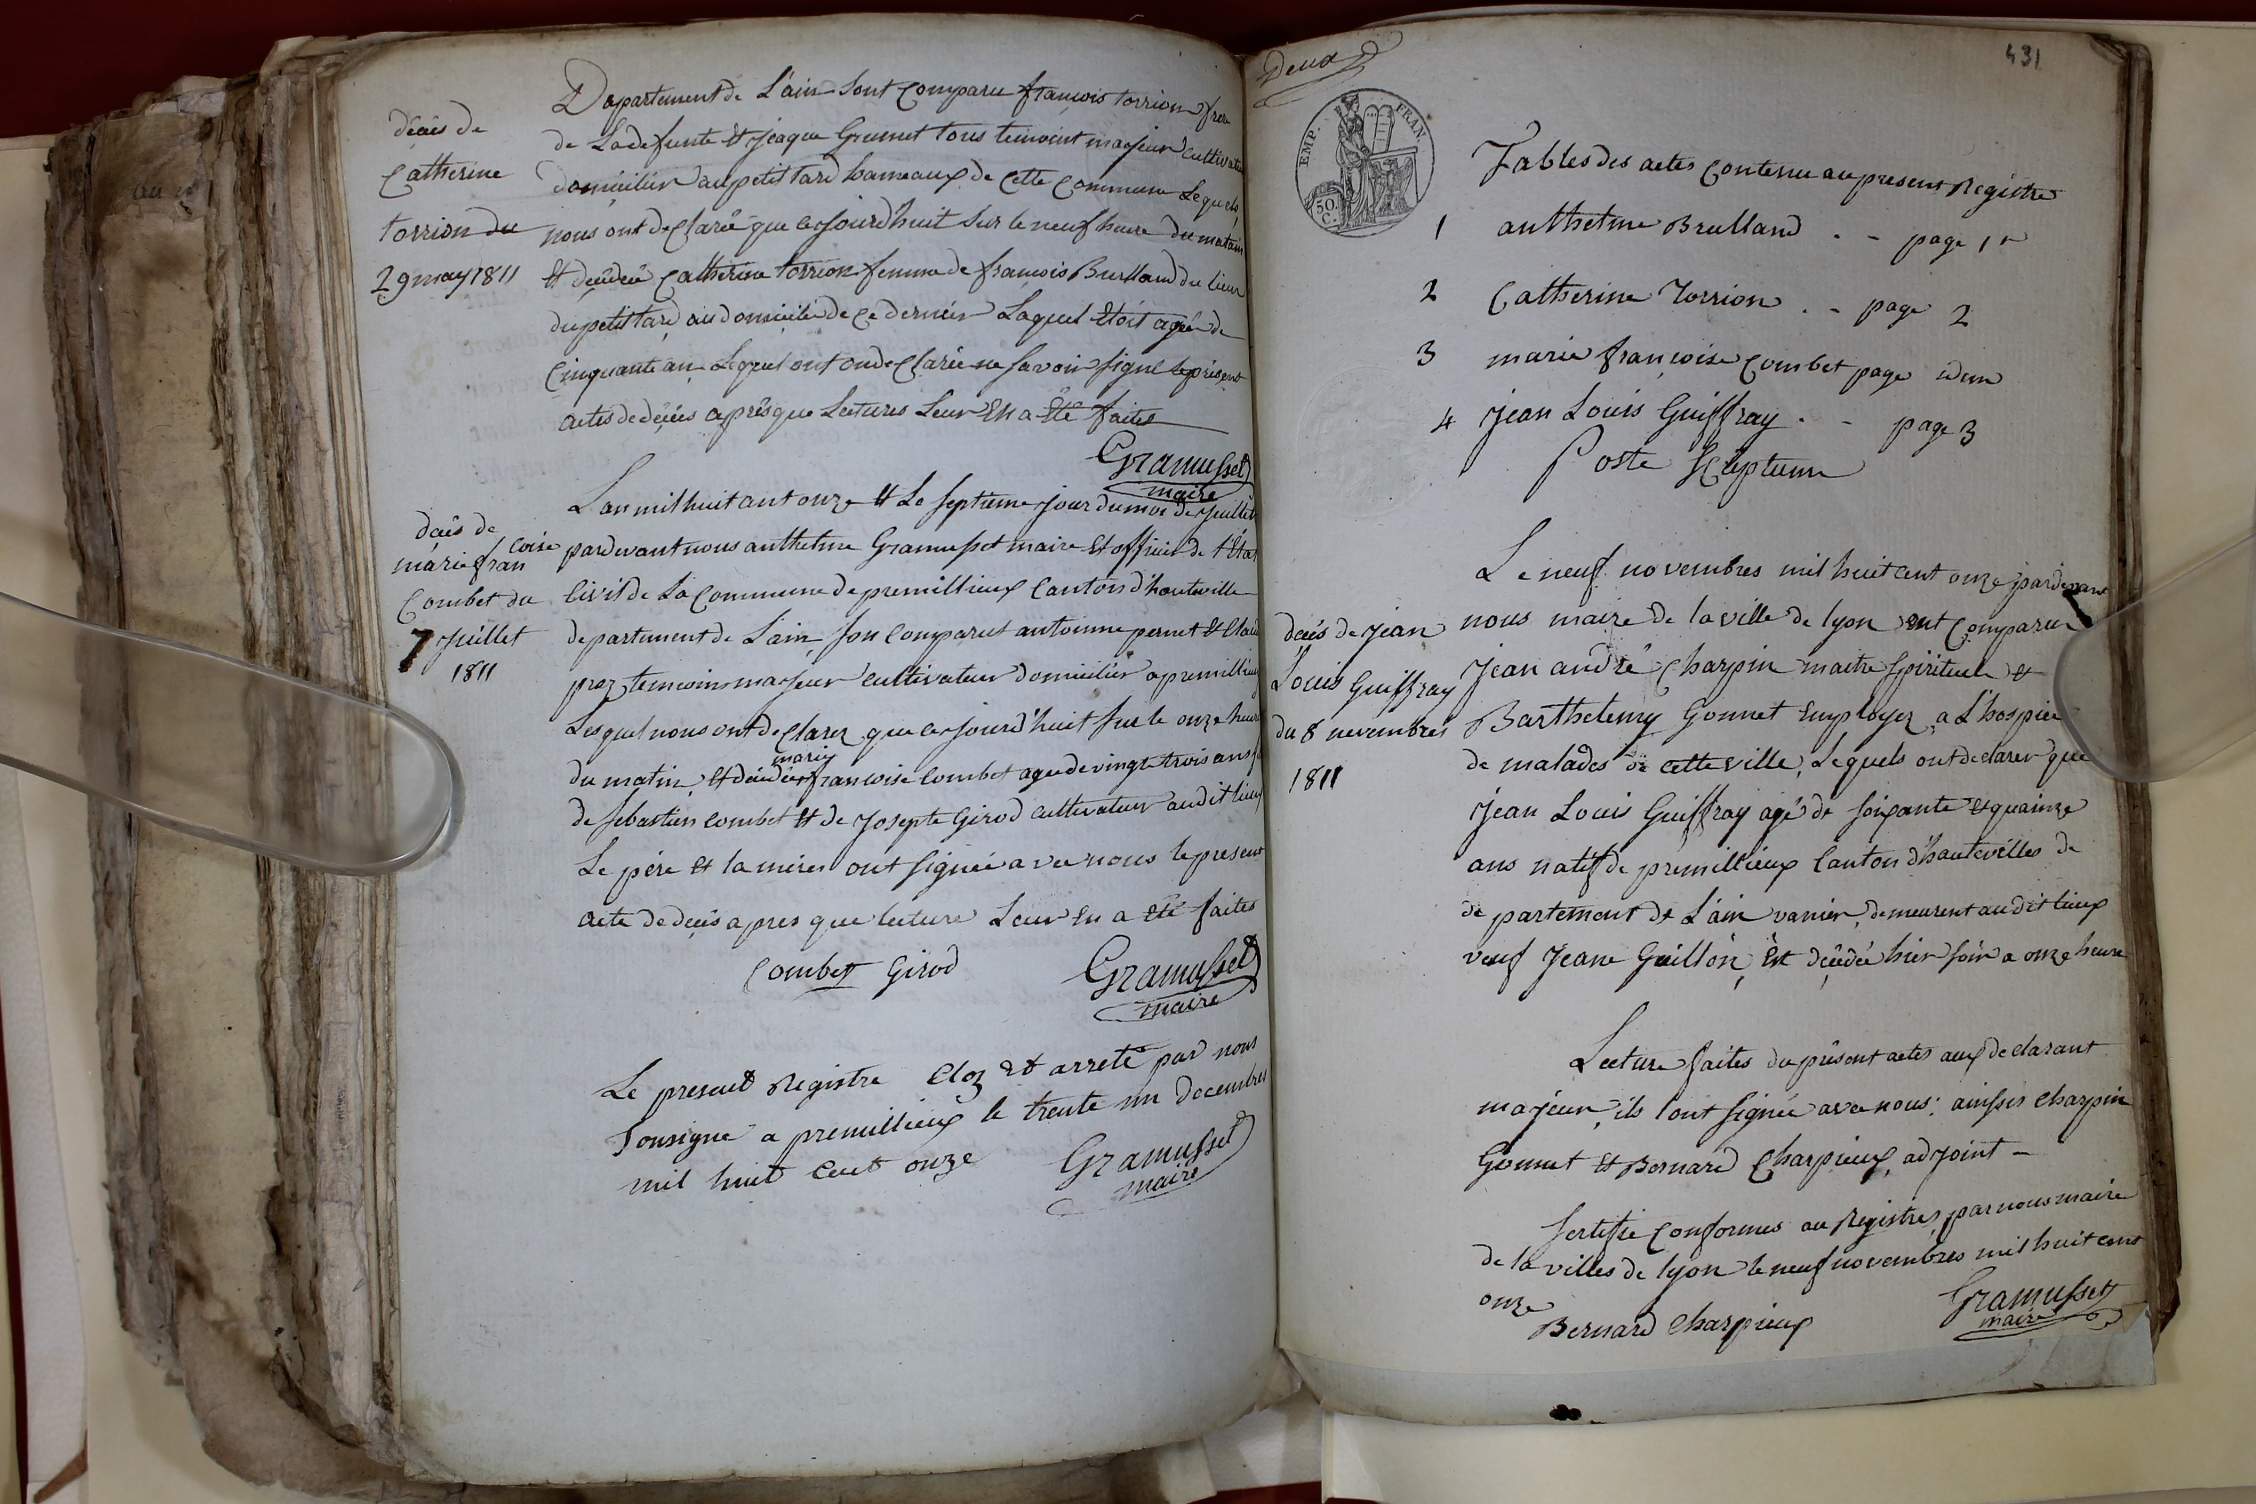 Departement de L'ain Sont Comparu françois torrion frere
décès de
Catherine
torrion du
29 may 1811
de Ladefunte Et Jeaque Grumet tous temoint majeur cultivateu
domicilier au petit tard hameaux de Cette Commune Lequels
nous ont declarée que cejourd'huit sur le neuf heure du matain
Et décédée Catherine torrion femme de françois Brulland du lieux
du petit tard au domicile de ce dernier Laquel Etoit agée de
Cinquante an Lequel ont on declarée ne savoir signé le présent
actes de décès après que Lectures Leur En a Eté faites
Gramusset
maire
décès de
marie fran coise
Combet du
7 Juillet
1811
L'an mil huit cant onze Et Le septieme jour du moi de Juillet
pardevant nous anthelme Gramusset maire Et officier de l'Etat
Civil de La Commune de premillieux Canton d'hauteville
departement de L'ain son Comparut antoinne pernet Et Clau
proz temoins majeur cultivateur domicilier a premillieux
Lesquel nous ont declarez que cejourd'huit sur le onze heure
du matin Et décédée marie francoise Combet agee de vingt trois ans f
de sebastien Combet Et de Josepte Girod cultivateur audit lieux
Le pére Et la mères ont signée avec nous le present
acte de décès apres que lecture Leur En a Eté faites
Combet Girod
Gramusset
maire
Le present Registre Cloz et arreté par nous
sousigné a premillieux le trente un decembres
mil huit Cent onze
Gramusset
maire
Deux
431
EMP. FRAN.
50.
C.
Tables des actes Contenu au present Registre
1 anthelme Brulland . - page 1 r
2 Catherine Torrion . - page 2
3 marie françoise Combet page idem
4 Jean Louis Guiffray . - page 3
Poste Scleptum
décès de Jean
Louis Guiffray
du 8 novembres
1811
Le neuf novembres mil huit cent onze pardevant
nous maire de la ville de lyon ont Comparu
Jean andré Charpin maitre spirituel et
Barthelemy Gonnet Employez a L'hospice
de malades de cette ville, Lequels ont declarer que
Jean Louis Guiffray agé de soixante et quainze
ans natif de premillieux Canton d'hautevilles de
departement de L'ain vanier, demeurent audit lieux
veuf Jeane Guillon, Est décédée hier soir a onze heure
Lecture faites du présent actes aux declarant
majeur, ils l'ont signée avec nous; ainssis Charpin
Gonnet Et Bernard Charpieux, adjoint -
Sertifié Conformes au Registres par nous maire
de la villes de lyon le neuf novembres mil huit cent
onze
Bernard Charpieux
Gramusset
maire